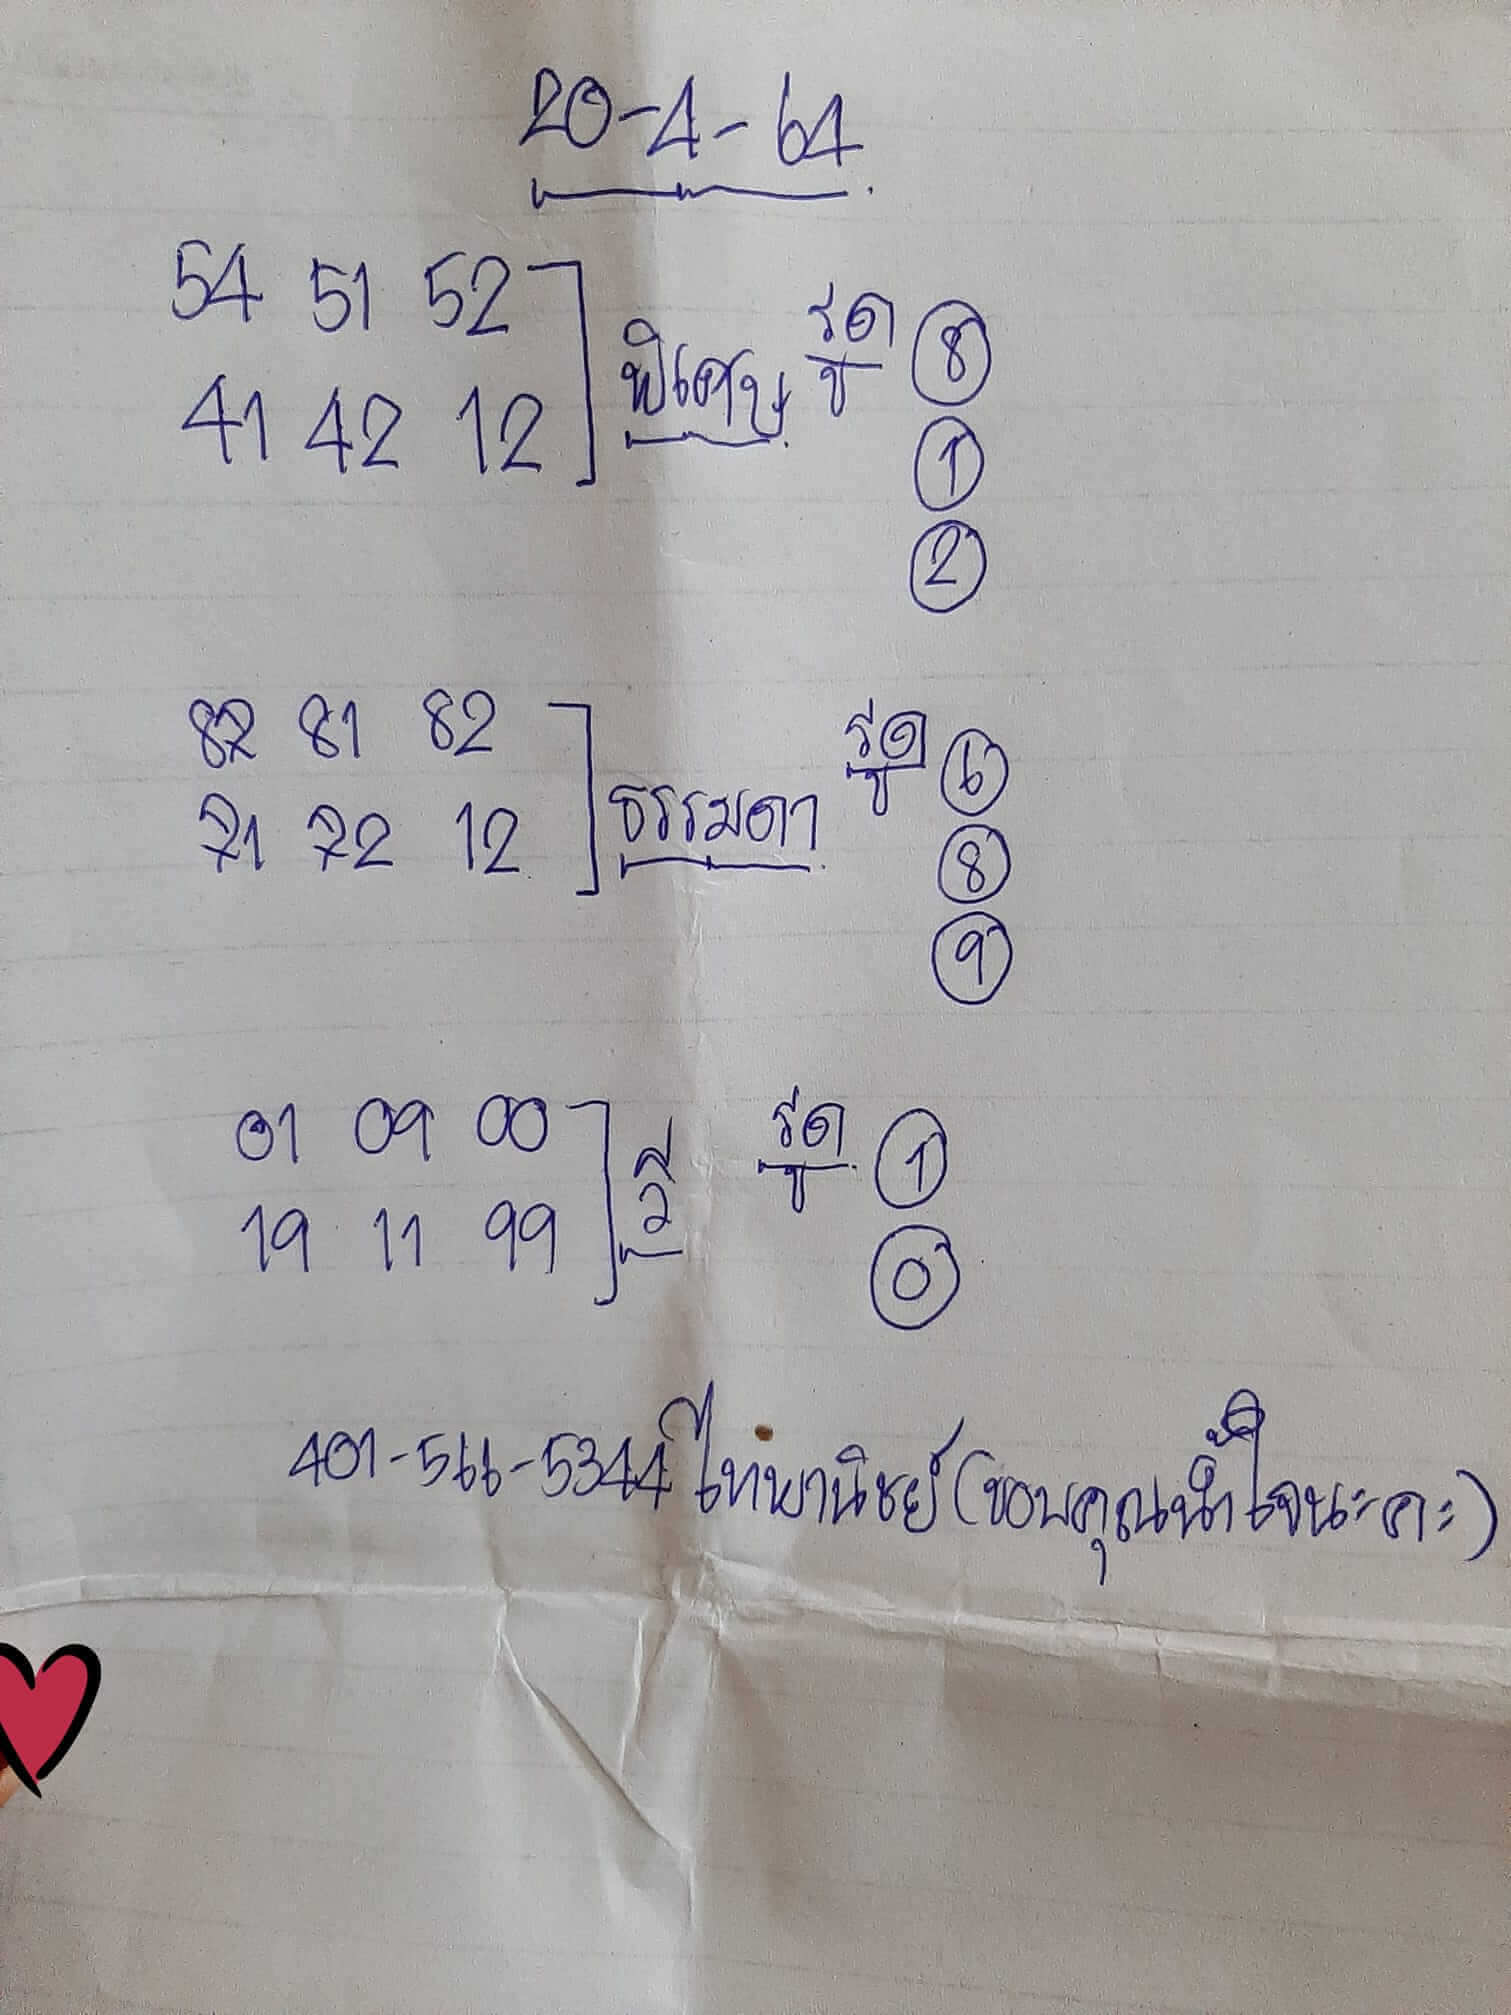 20-4-64
54 51 52
41 42 12
พิเศษ รูด 8
1
2
82 81 82
71 72 12
ธรรมดา รูด 6
8
9
01 09 00
19 11 99
วี รูด 1
0
401-566-5344 ไทพานิชย์ (ขอบคุณน้ำใจนะคะ)